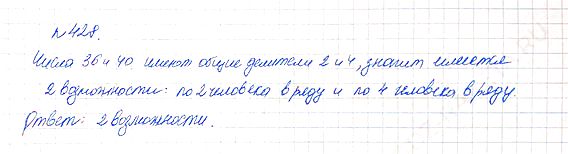 №428.
Числа 36 и 40 имеют общие делители 2 и 4, значит имеется
2 возможности: по 2 человека в ряду и по 4 человека в ряду.
Ответ: 2 возможности.